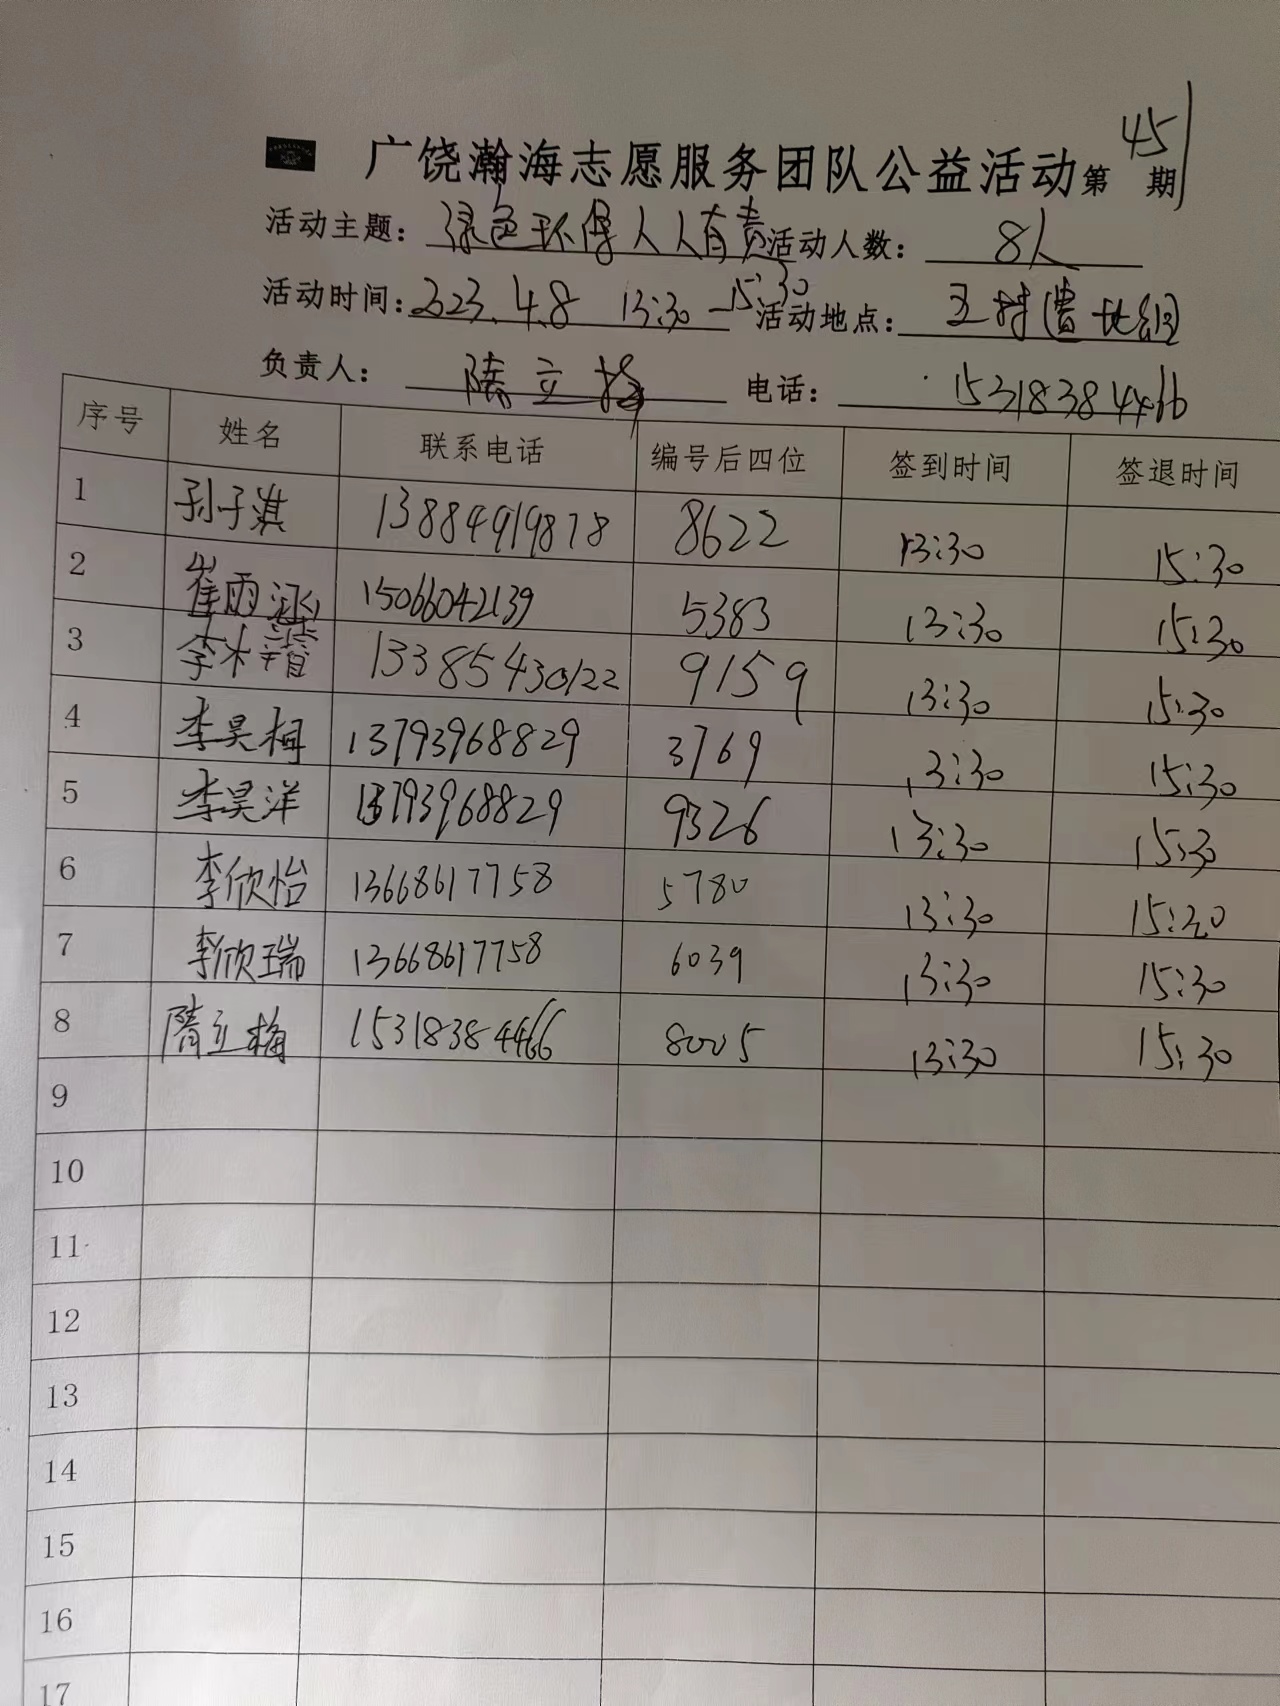 广饶瀚海志愿服务团队公益活动第451期
活动主题：绿色环保人人有责 活动人数：8人
活动时间：2023.4.8 13:30-15:30 活动地点：王村
负责人：隋立梅 电话：15318384466
序号 姓名 联系电话 编号后四位 签到时间 签退时间
1 孙子淇 13884919878 8622 13:30 15:30
2 崔雨涵 15066042139 5383 13:30 15:30
3 李木 13385430122 9159 13:30 15:30
4 李昊桐 13793968829 3769 13:30 15:30
5 李昊洋 13793968829 9326 13:30 15:30
6 李欣怡 13668617758 5780 13:30 15:30
7 李欣瑞 13668617758 6039 13:30 15:30
8 隋立梅 15318384466 8005 13:30 15:30
9
10
11
12
13
14
15
16
17